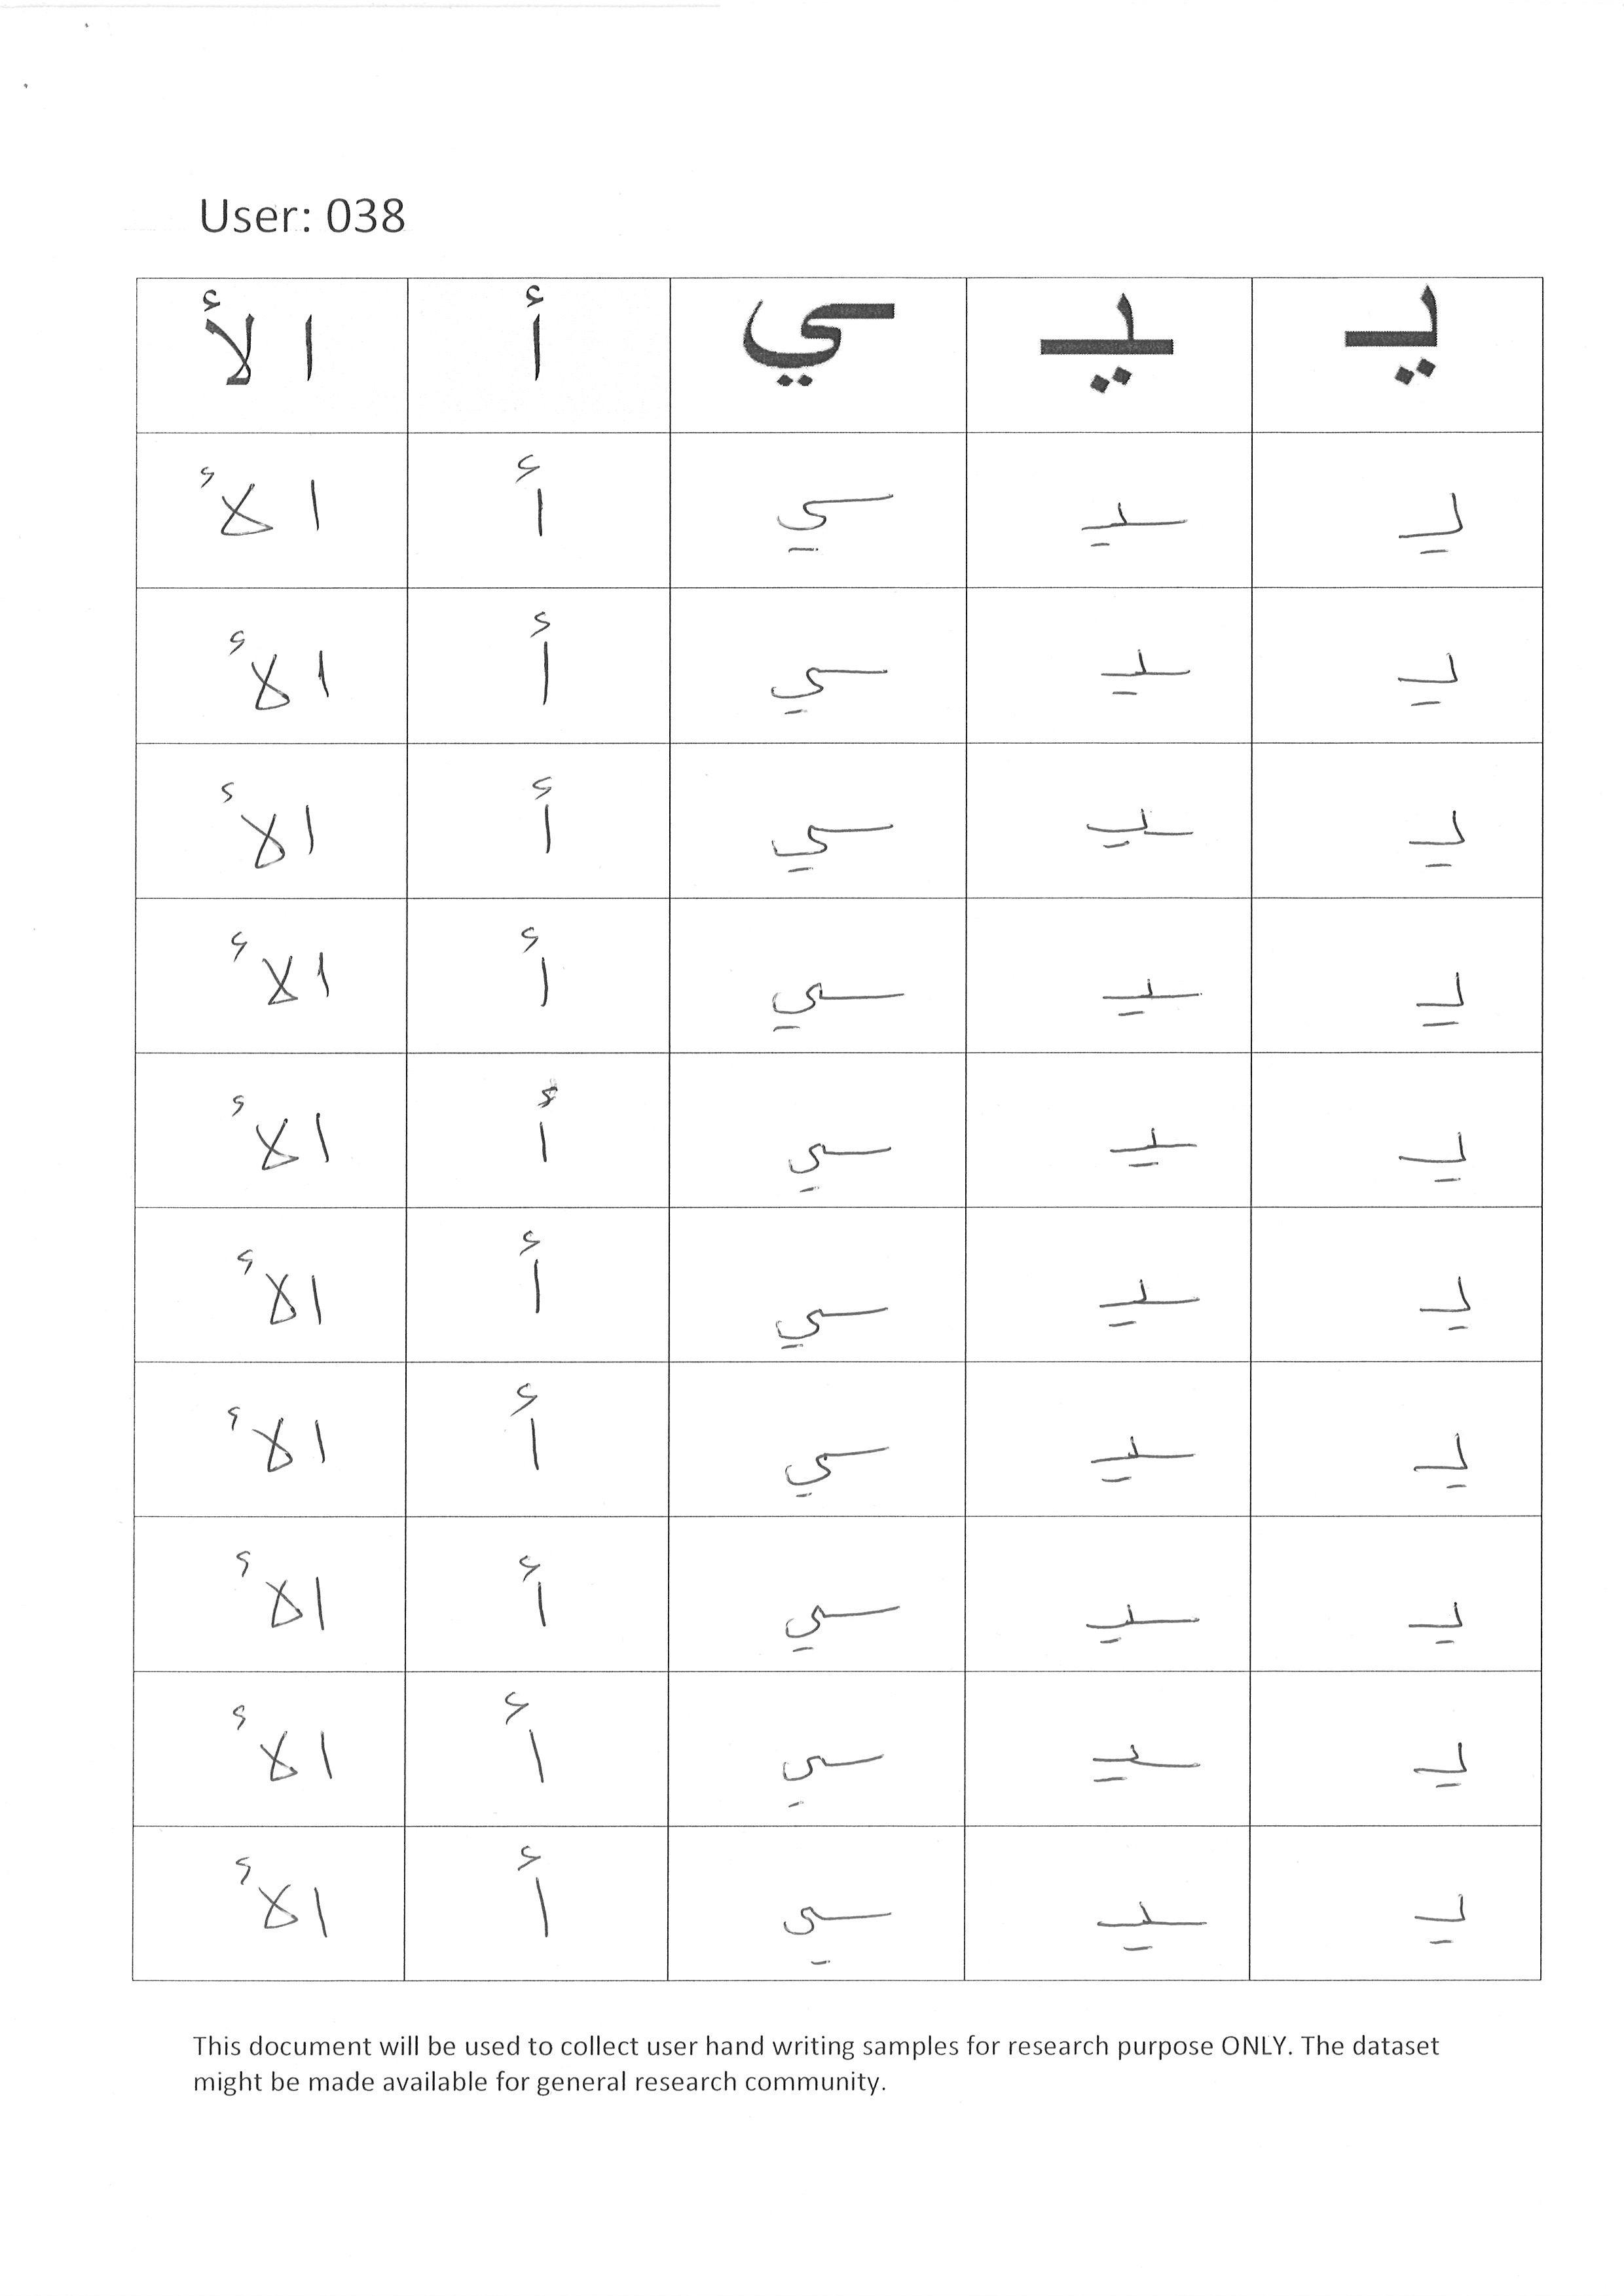 User: 038
يـ ـيـ ـي أ ا لأ
يـ ـيـ ـي أ ا لأ
يـ ـيـ ـي أ ا لأ
يـ ـيـ ـي أ ا لأ
يـ ـيـ ـي أ ا لأ
يـ ـيـ ـي أ ا لأ
يـ ـيـ ـي أ ا لأ
يـ ـيـ ـي أ ا لأ
يـ ـيـ ـي أ ا لأ
يـ ـيـ ـي أ ا لأ
يـ ـيـ ـي أ ا لأ
This document will be used to collect user hand writing samples for research purpose ONLY. The dataset
might be made available for general research community.